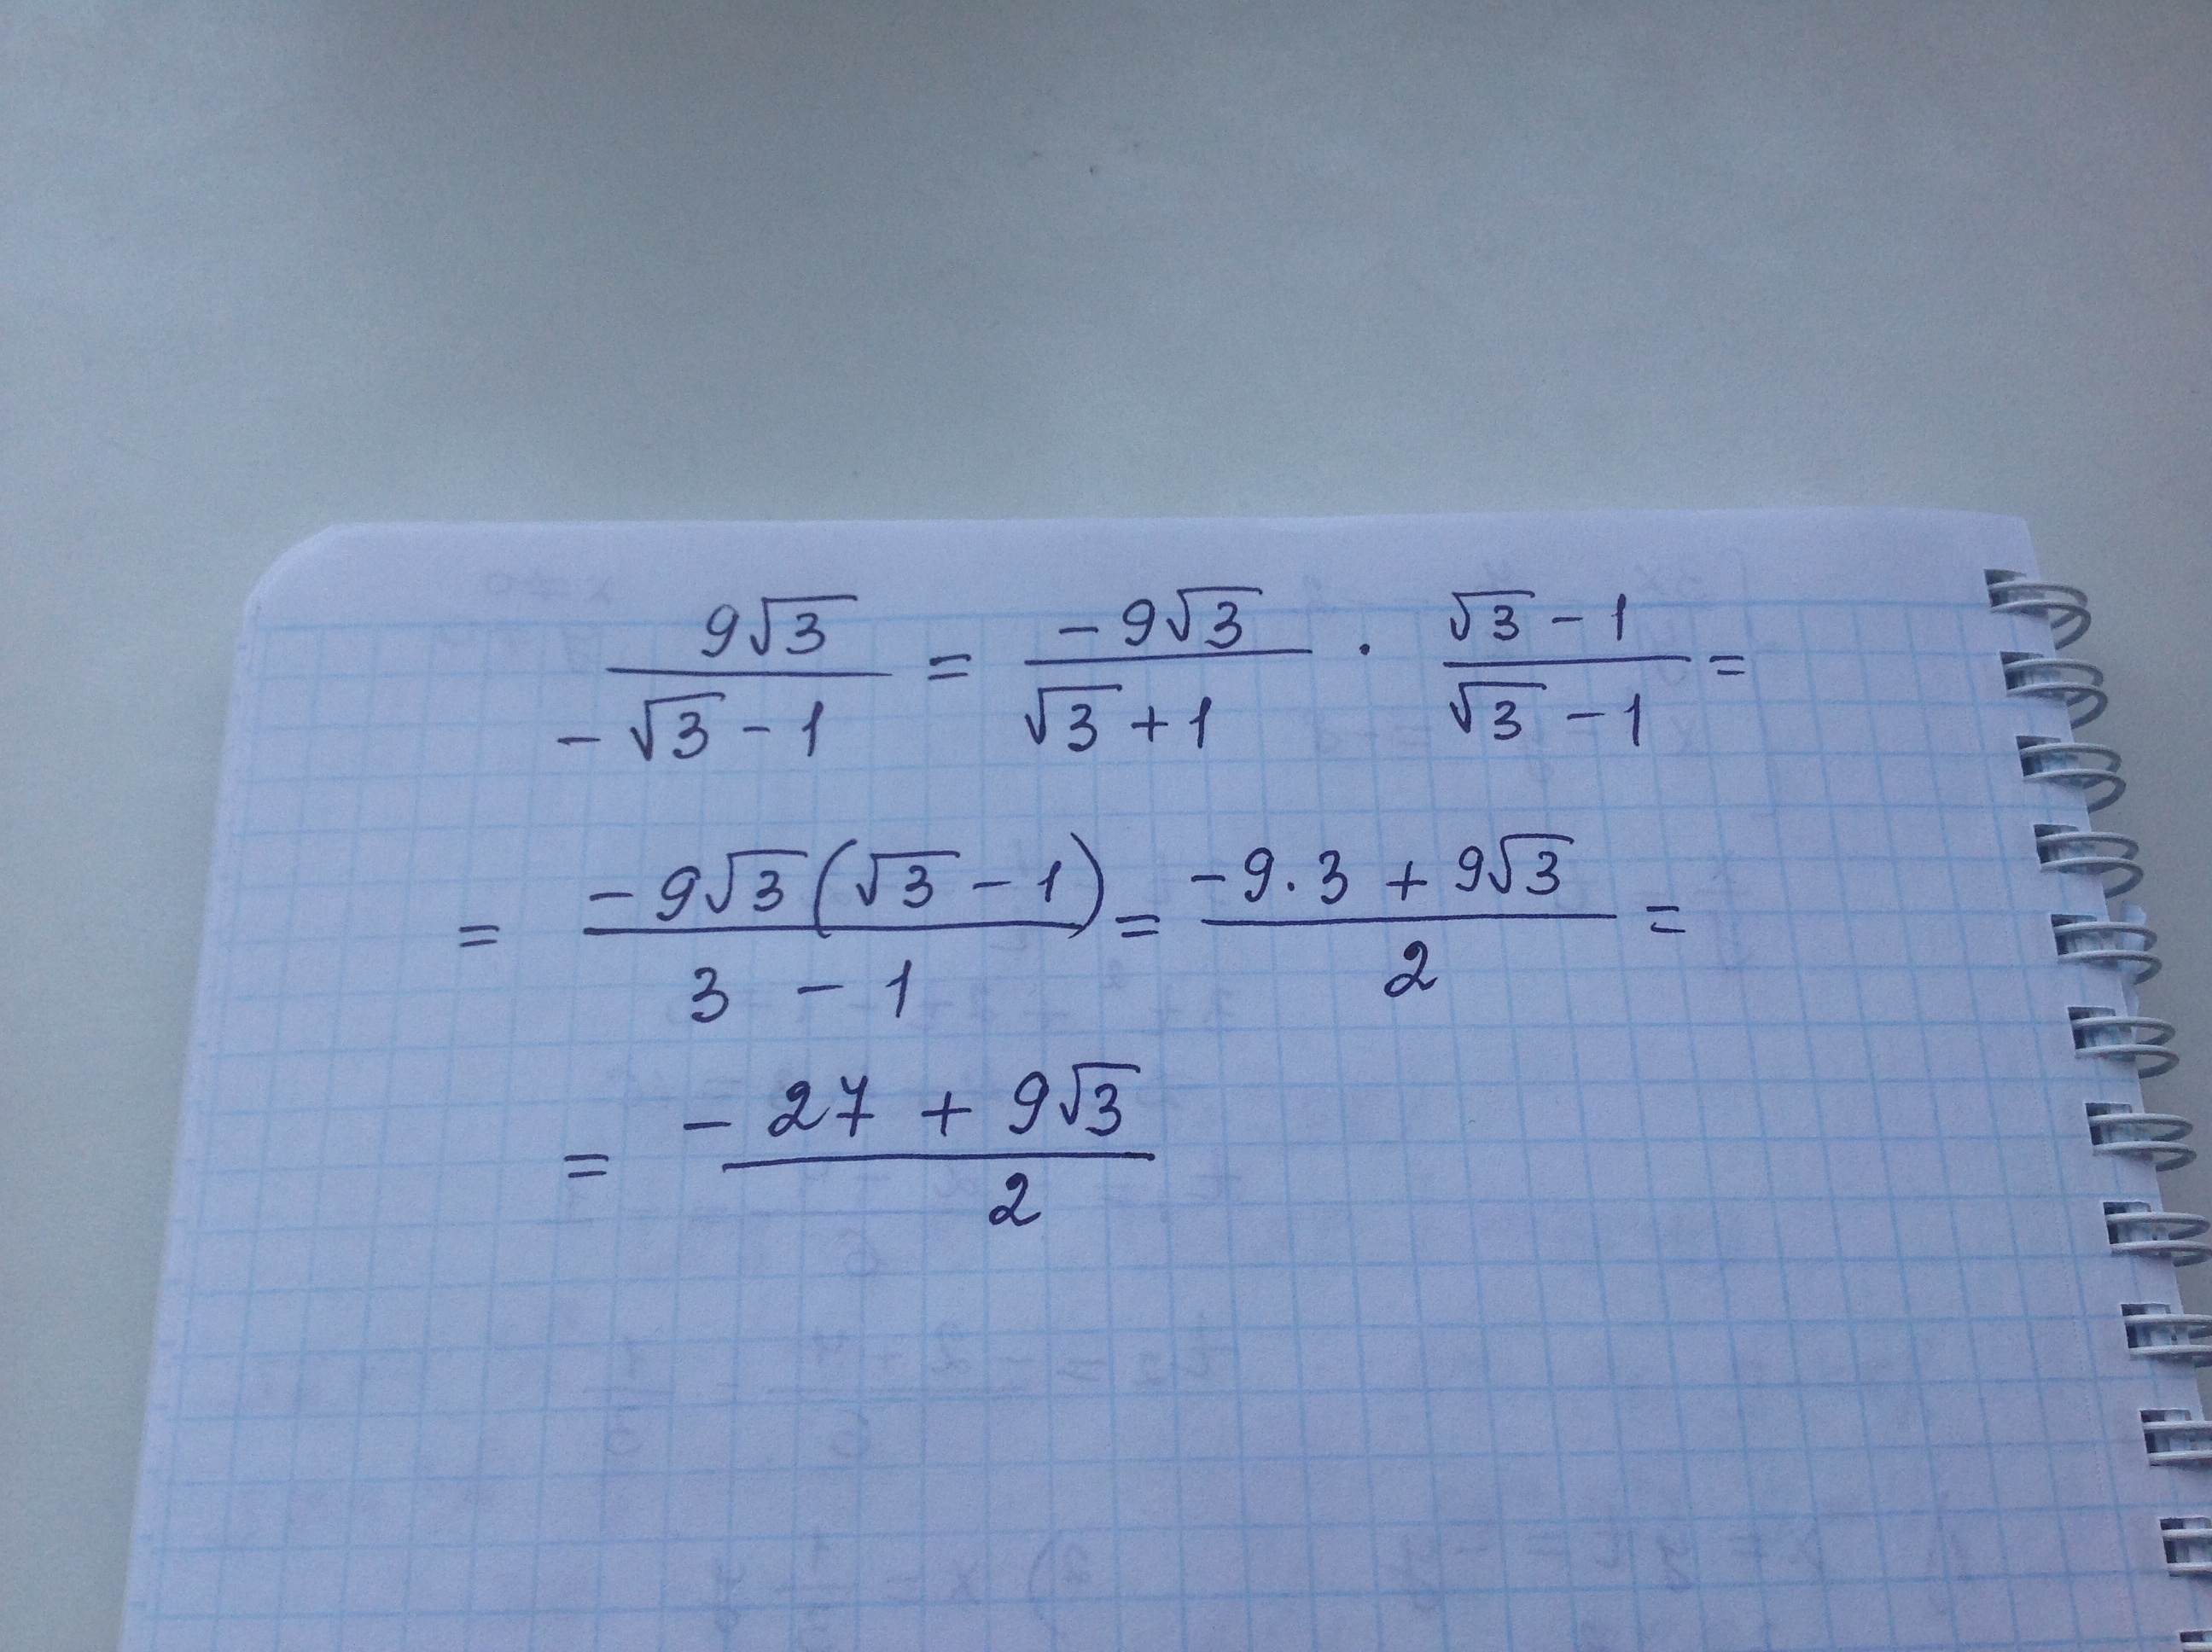 9√3 / (-√3 - 1) = -9√3 / (√3 + 1) · (√3 - 1) / (√3 - 1) =
= -9√3(√3 - 1) / (3 - 1) = (-9·3 + 9√3) / 2 =
= (-27 + 9√3) / 2